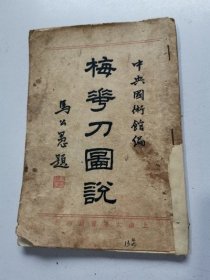 中央國術館編
梅花刀圖說
馬公愚題